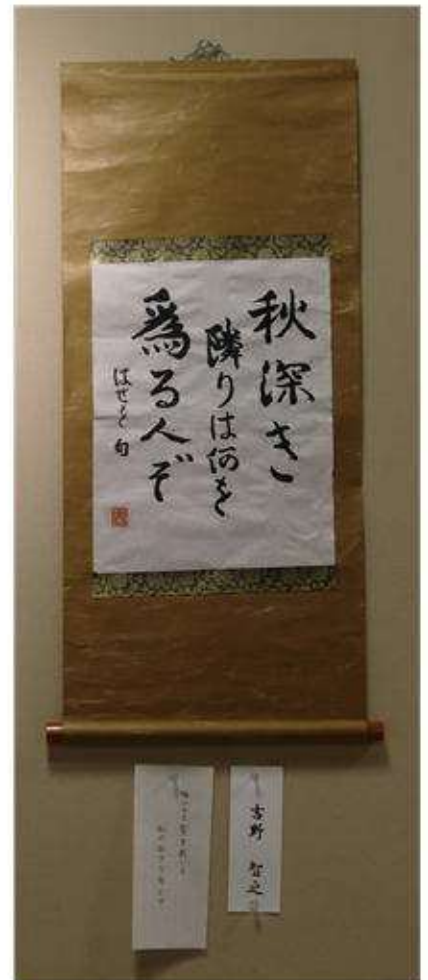 秋深き
隣りは何を
爲る人ぞ
はせを 句
吉野 智之